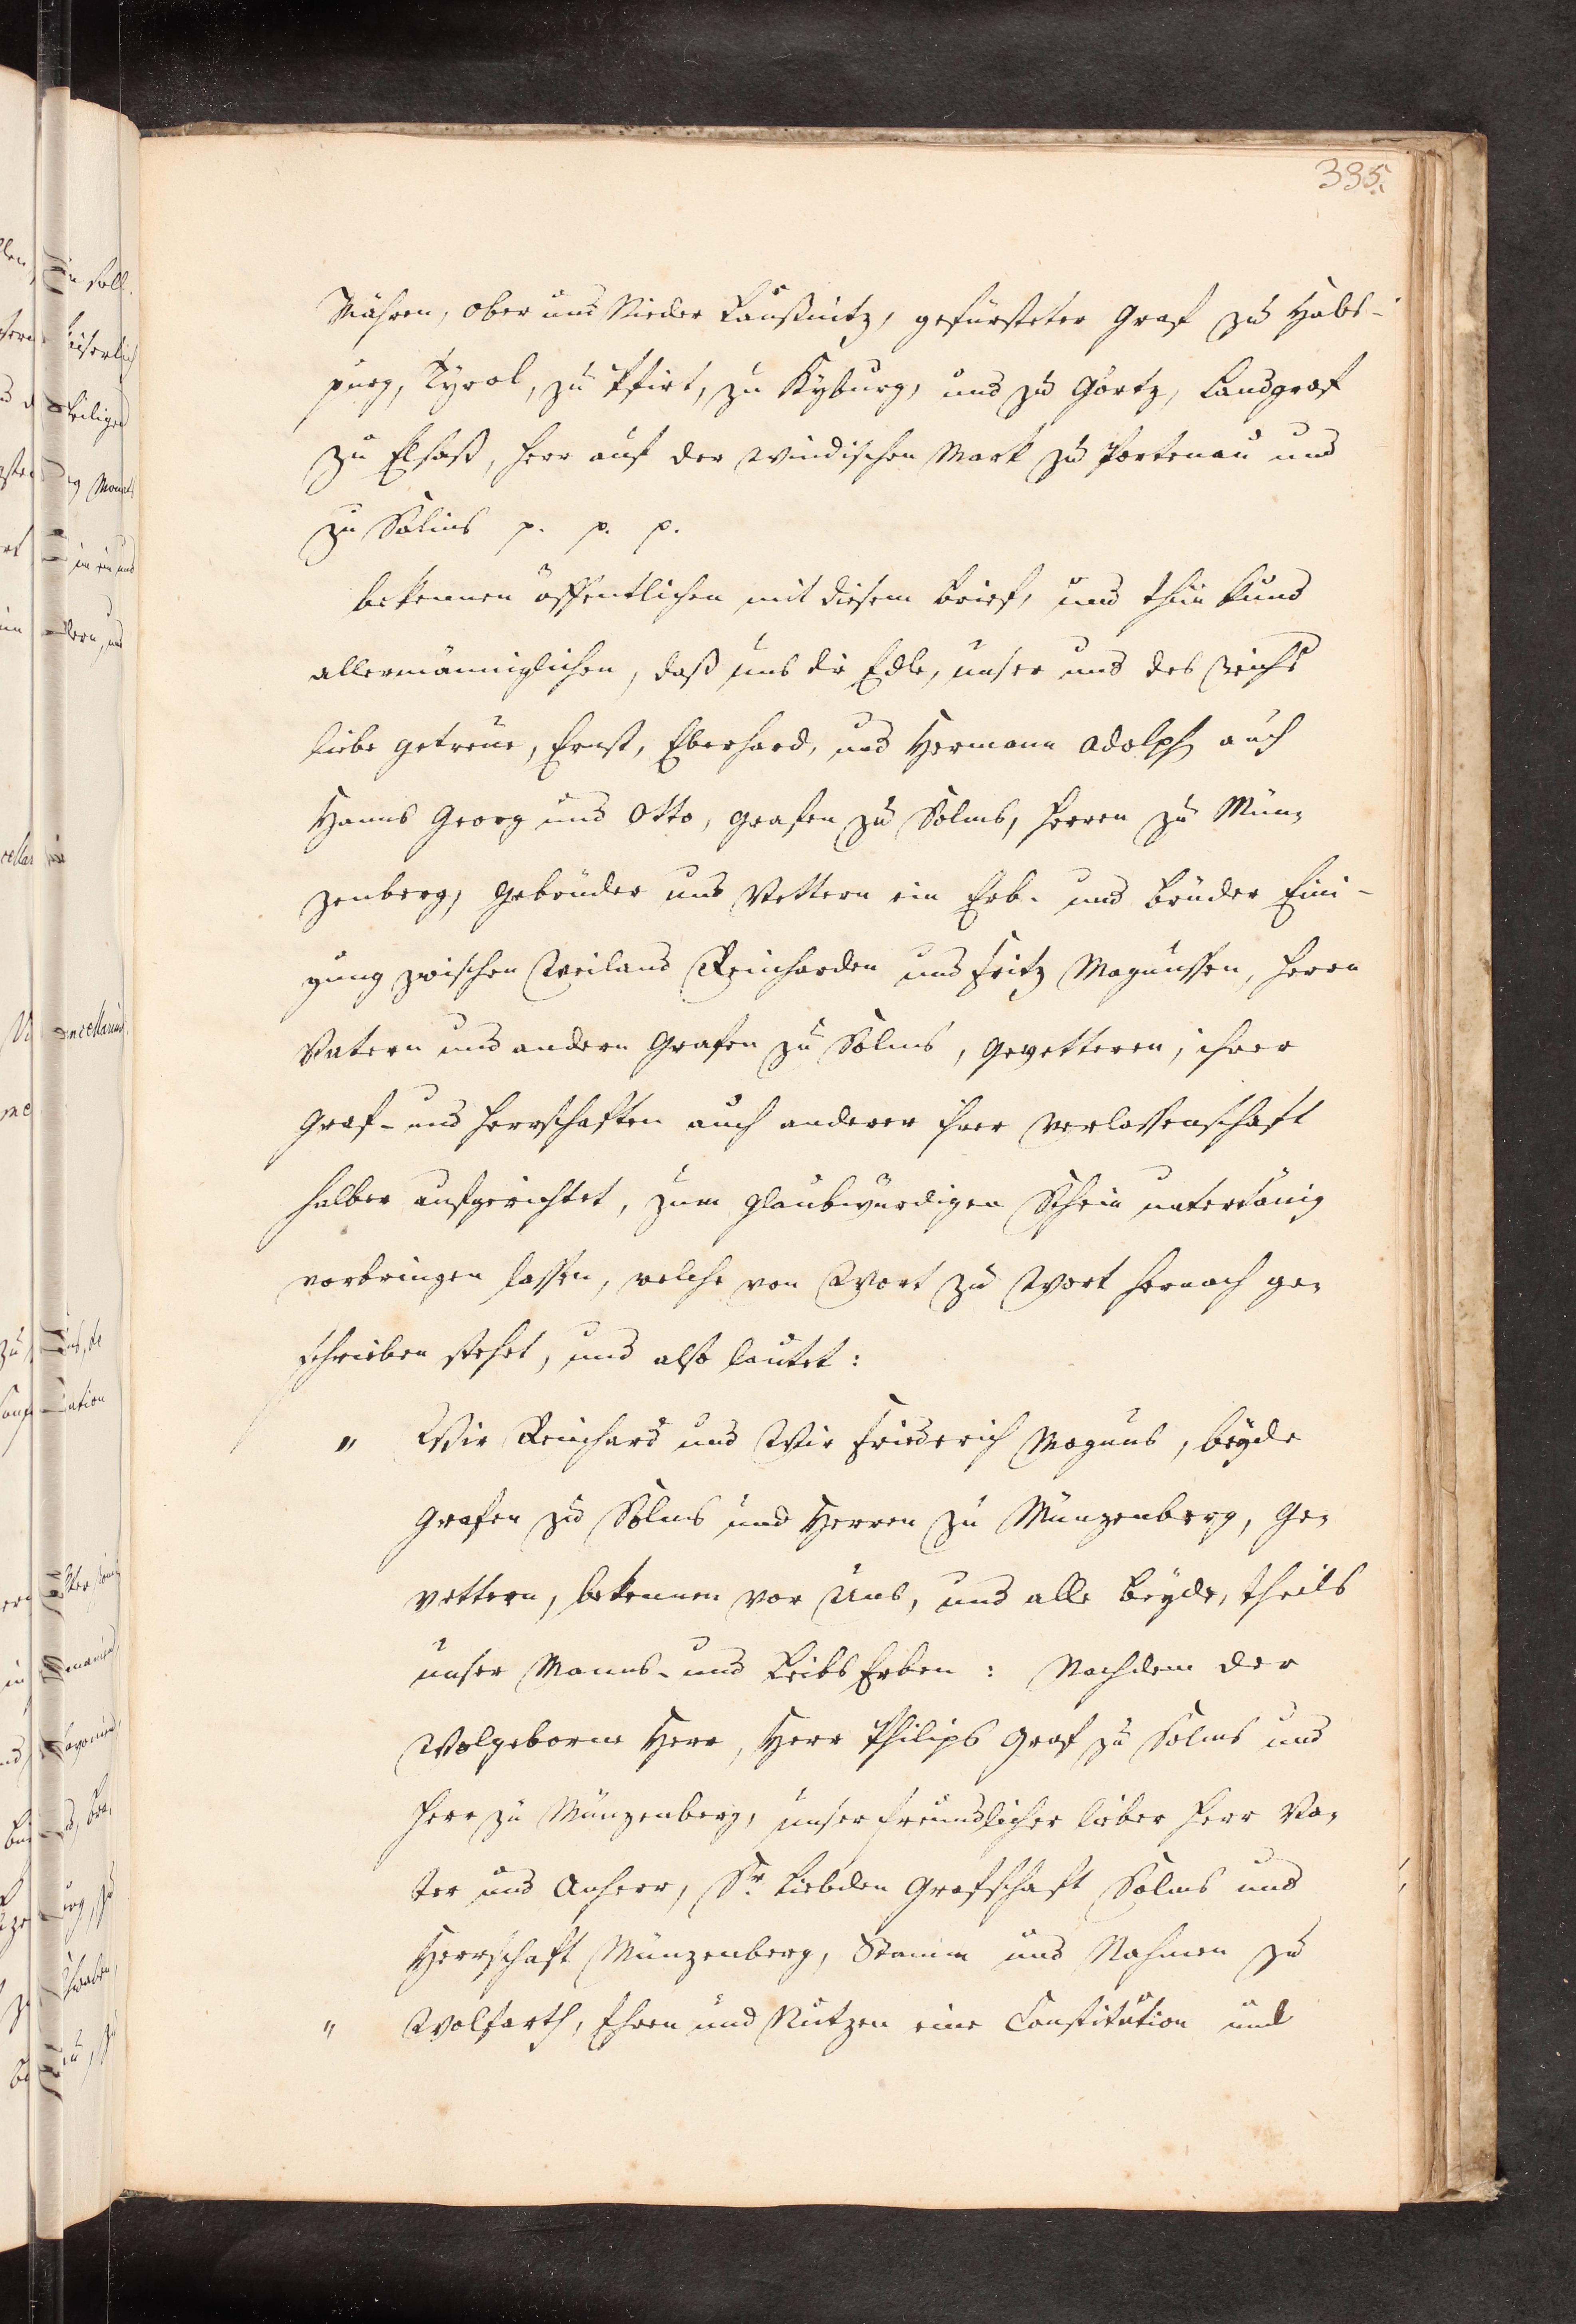 335.
Mähren, Ober und Nieder Laußnitz, gefürsteter Graf zu Habs-
purg, Tyrol, zu Pfirt, zu Kyburg, und zu Görtz, Landgraf
zu Elsaß, Herr auf der Windischen Mark zu Portenau und
zu Salins p. p. p.
bekennen öffentlichen mit diesem Brief, und thun kund
allermänniglichen, daß uns die Edle, unser und des Reichs
liebe getreue, Ernst, Eberhard, und Hermann Adolph auch
Hanns Georg und Otto, Grafen zu Solms, Herren zu Mün-
zenberg, Gebrüder und Vettern ein Erb- und Brüder Eini-
gung zwischen Weiland Reinharden und Fritz Magnussen, Herrn
Vatern und andern Grafen zu Solms, Gevetteren, ihrer
Graf- und Herrschaften auch anderer ihrer Verlassenschaft
halber aufgerichtet, zum glaubwürdigen Schein unterthänig
vorbringen lassen, welche von Wort zu Wort hernach ge-
schrieben stehet, und also lautet:
" Wir Reinhard und Wir Friederich Magnus, beyde
Grafen zu Solms und Herren zu Münzenberg, Ge-
vettern, bekennen vor Uns, und alle beyde, theils
unser Manns- und Leibs Erben: Nachdem der
Wolgeborne Herr, Herr Philips Graf zu Solms und
Herr zu Münzenberg, unser freundlicher lieber Herr Va-
ter und Anherr, Sr. Liebden Grafschaft Solms und
Herrschaft Münzenberg, Stamm und Nahmen zu
" Wolfarth, Ehren und Nutzen eine Constitution und